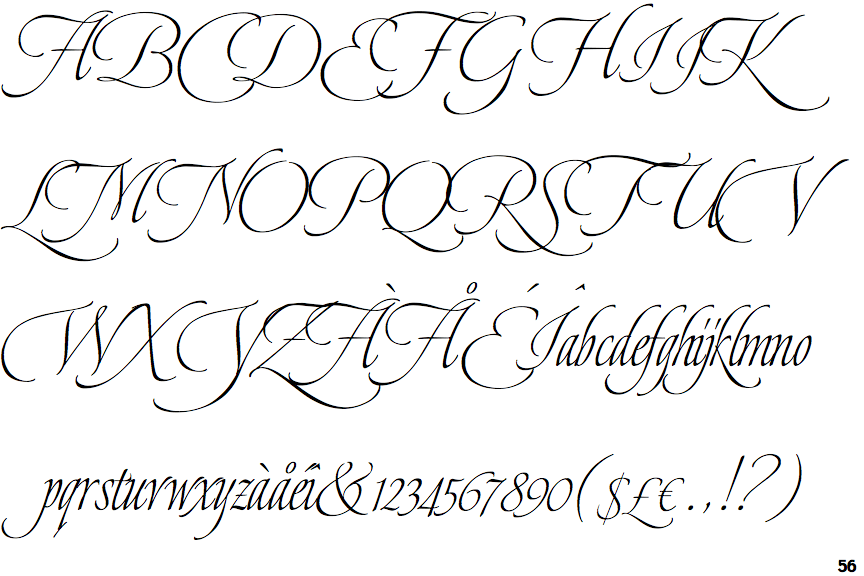 ABCDEFGHIJK
LMNOPQRSTUV
WXYZÀÅÉÎabcdefghijklmno
pqrstuvwxyzàåéî&1234567890($£€.,!?)
56